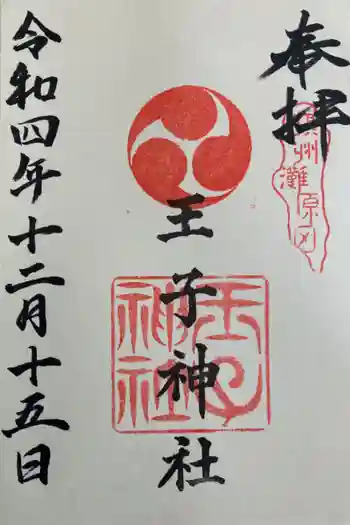 奉拝
王子神社
令和四年十二月十五日
王子
神社